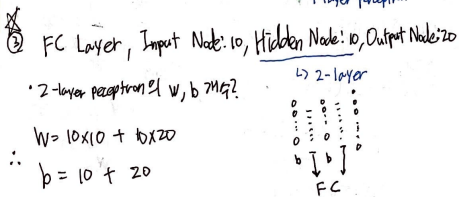 ③ FC Layer, Input Node: 10, Hidden Node: 10, Output Node: 20
↳ 2-layer
• 2-layer peceptron의 w, b 개수?
W = 10×10 + 10×20
∴
b = 10 + 20
b b
FC